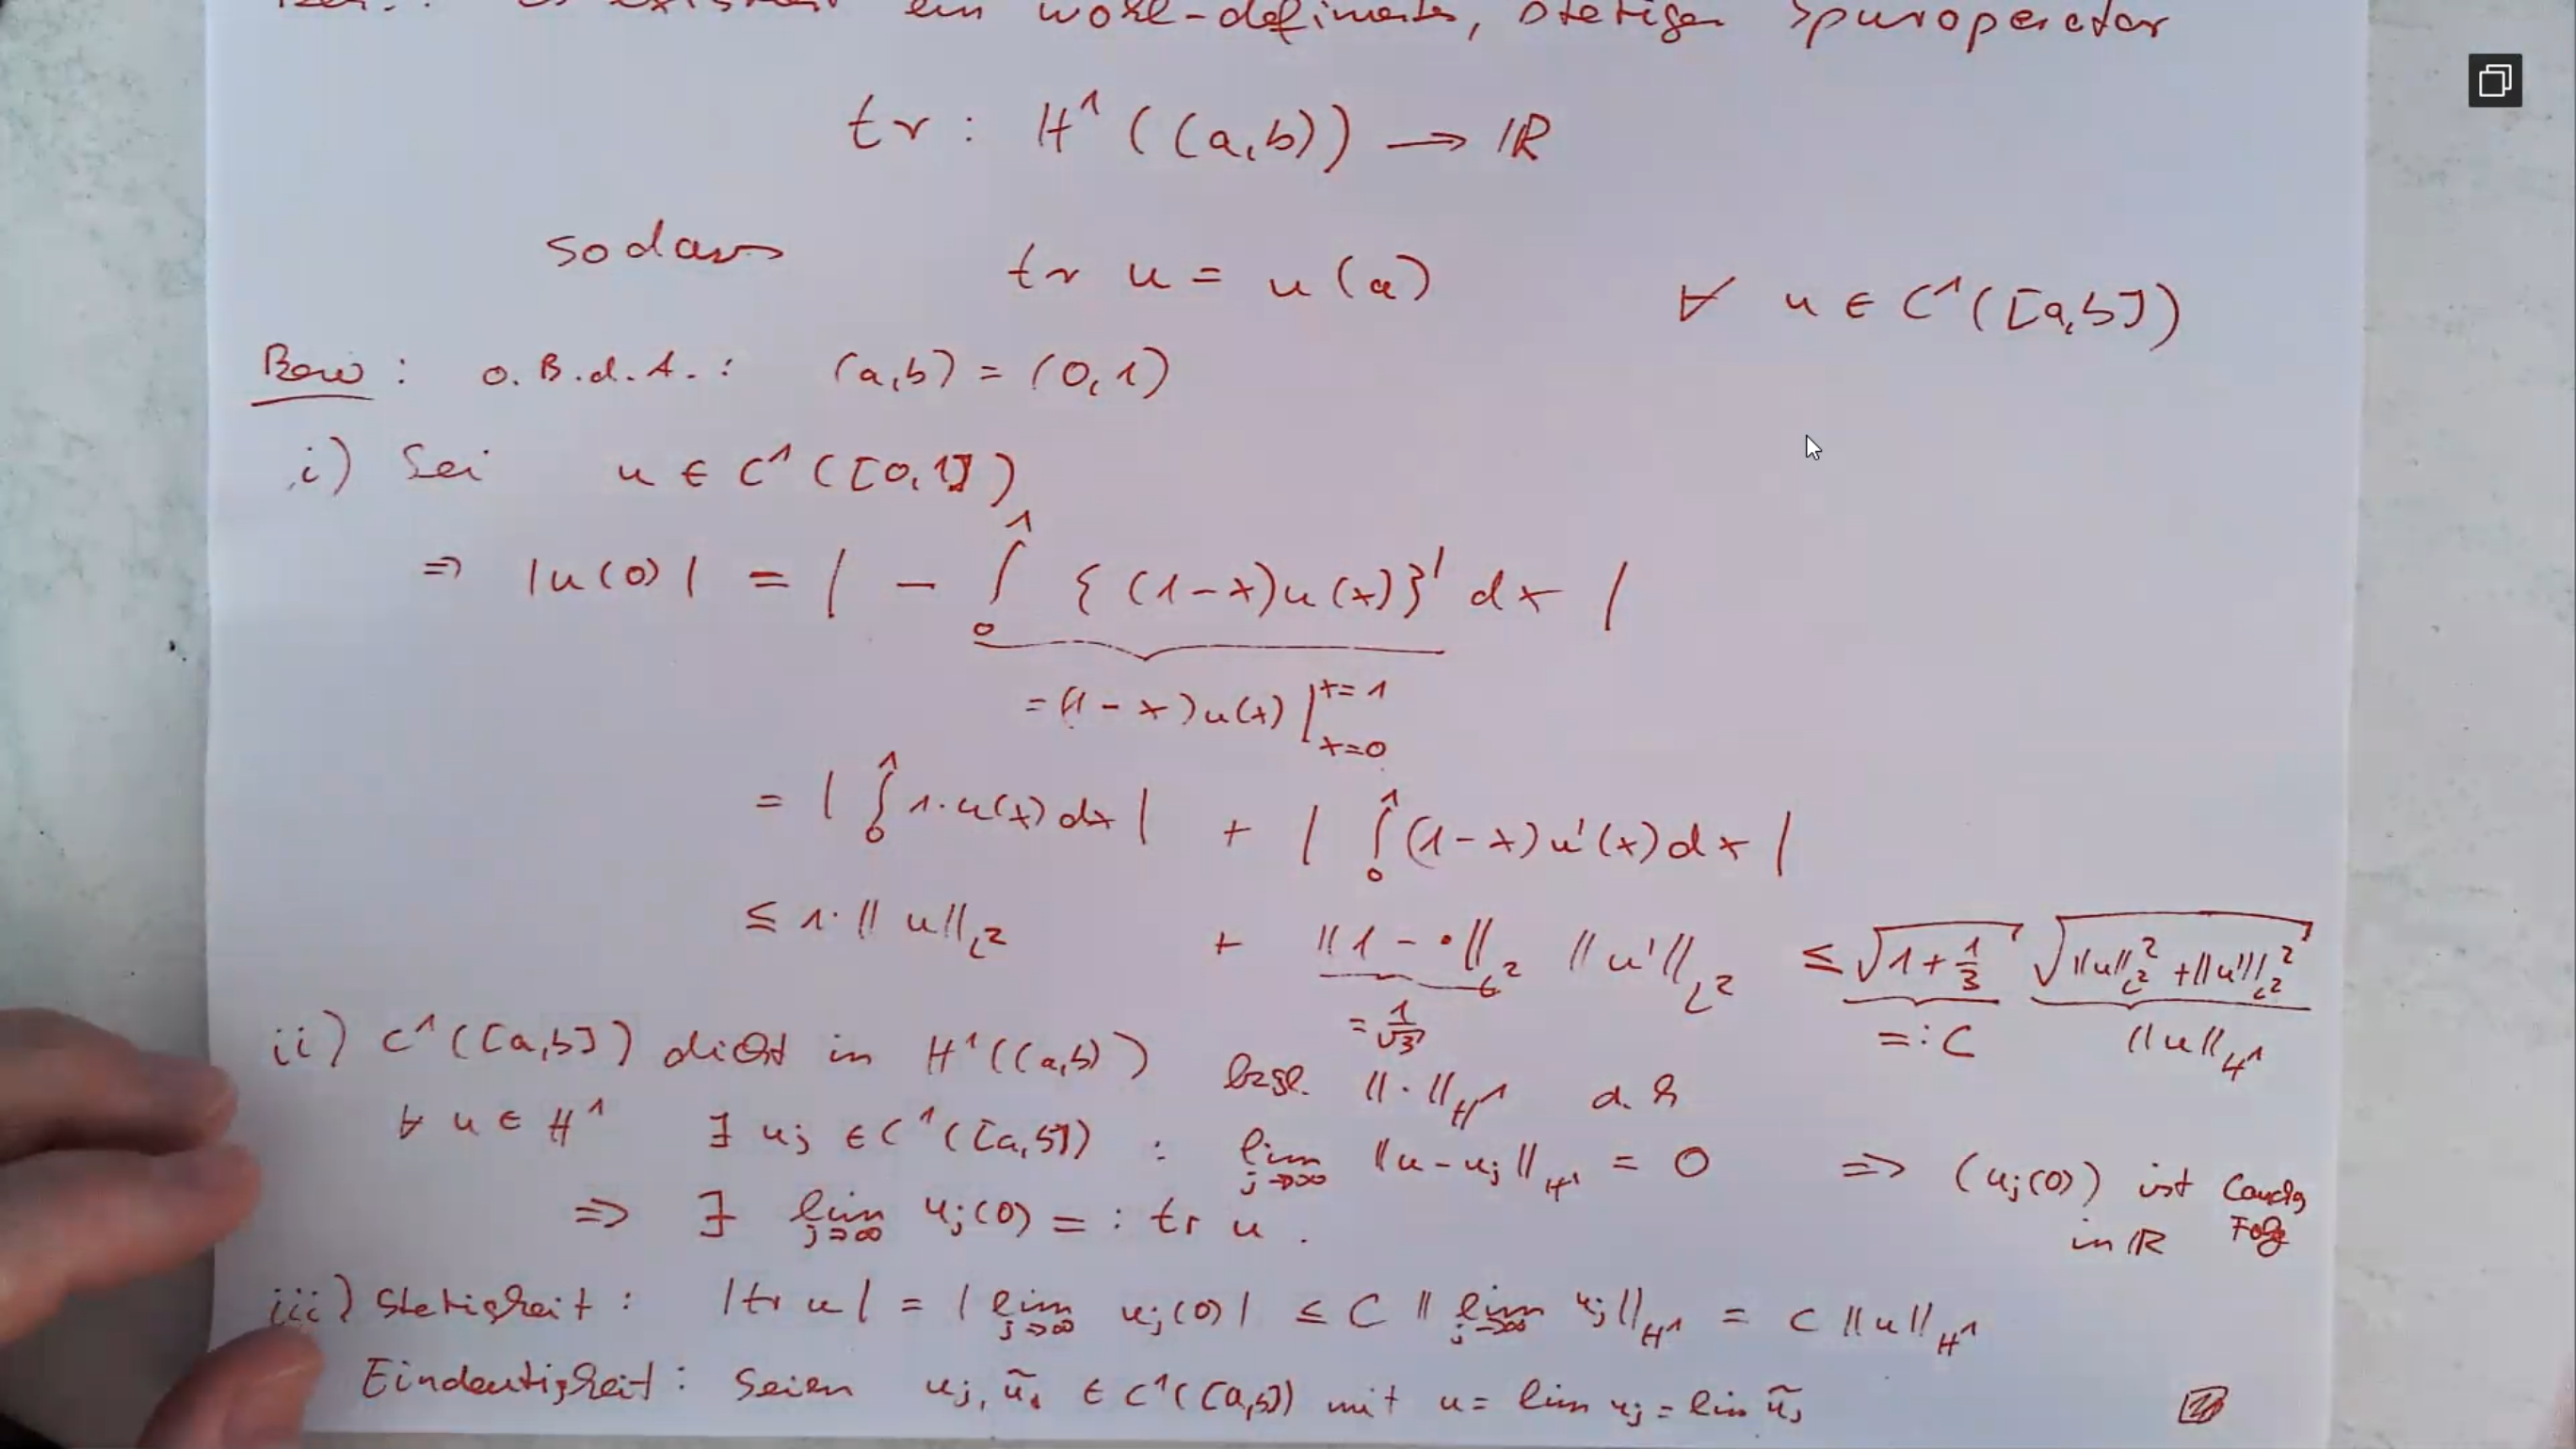 ein wohl-definierter, stetiger Spuroperator
tr : H¹ ((a,b)) → ℝ
sodass tr u = u(a) ∀ u ∈ C¹([a,b])
Bew : o.B.d.A. : (a,b) = (0,1)
i) Sei u ∈ C¹([0,1])
⇒ |u(0)| = | - ∫₀¹ {(1-x)u(x)}' dx |
= (1-x)u(x) |_{x=0}^{x=1}
= | ∫₀¹ 1·u(x)dx | + | ∫₀¹ (1-x)u'(x)dx |
≤ 1·||u||_{L²} + ||1-•||_{L²} ||u'||_{L²} ≤ √(1+1/3) √(||u||²_{L²} + ||u'||²_{L²})
= 1/√3 =: C ||u||_{H¹}
ii) C¹([a,b]) dicht in H¹((a,b)) bzgl. ||·||_{H¹} d.h
∀ u ∈ H¹ ∃ uj ∈ C¹([a,b]) : lim_{j→∞} ||u-uj||_{H¹} = 0 ⇒ (uj(0)) ist Cauchy Folge in ℝ
⇒ ∃ lim_{j→∞} uj(0) =: tr u .
iii) Stetigkeit : |tr u| = | lim_{j→∞} uj(0)| ≤ C || lim_{j→∞} uj||_{H¹} = C ||u||_{H¹}
Eindeutigkeit : Seien uj, ũj ∈ C¹([a,b]) mit u = lim uj = lim ũj